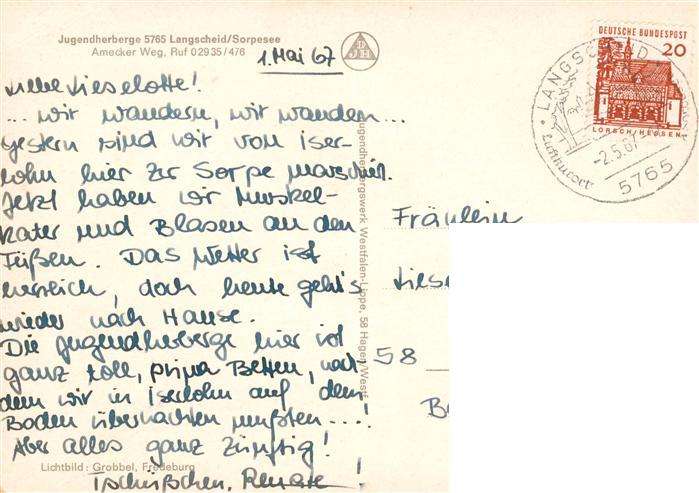 Jugendherberge 5765 Langscheid/Sorpesee
Amecker Weg, Ruf 02935/476
1. Mai 67
Liebe Lieselotte!
... wir wandern, wir wandern...
gestern sind wir von Iser-
lohn hier zur Sorpe marschiert.
Jetzt haben wir Muskel-
kater und Blasen an den
Füßen. Das Wetter ist
herrlich, doch heute geht's
wieder nach Hause.
Die Jugendherberge hier ist
ganz toll, prima Betten, nach-
dem wir in Iserlohn auf dem
Boden übernachten mußten...!
Aber alles ganz zünftig!
Tschüßchen, Renate!
Lichtbild: Grobbel, Fredeburg
Jugendherbergswerk Westfalen-Lippe, 58 Hagen/Westf.
DEUTSCHE BUNDESPOST
20
LORSCH/HESSEN
LANGSCHEID
-2.5.67
Luftkurort
5765
Fräulein
Liese
58